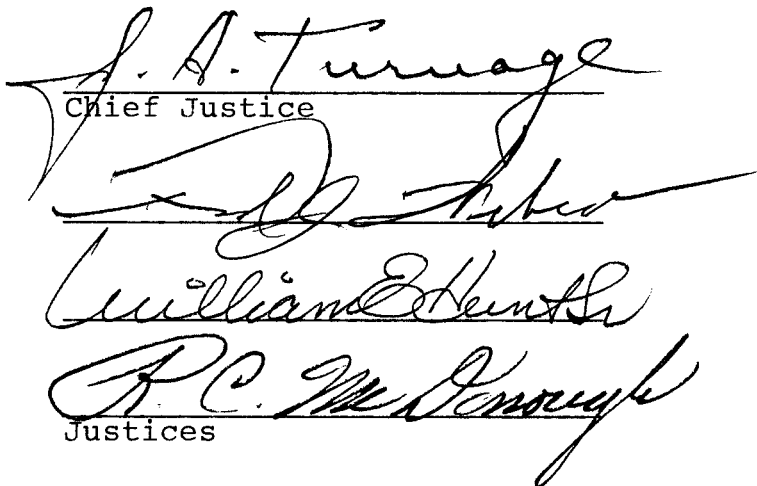 J. A. Turnage
Chief Justice
William E Hunt Sr
R. C. McDonough
Justices